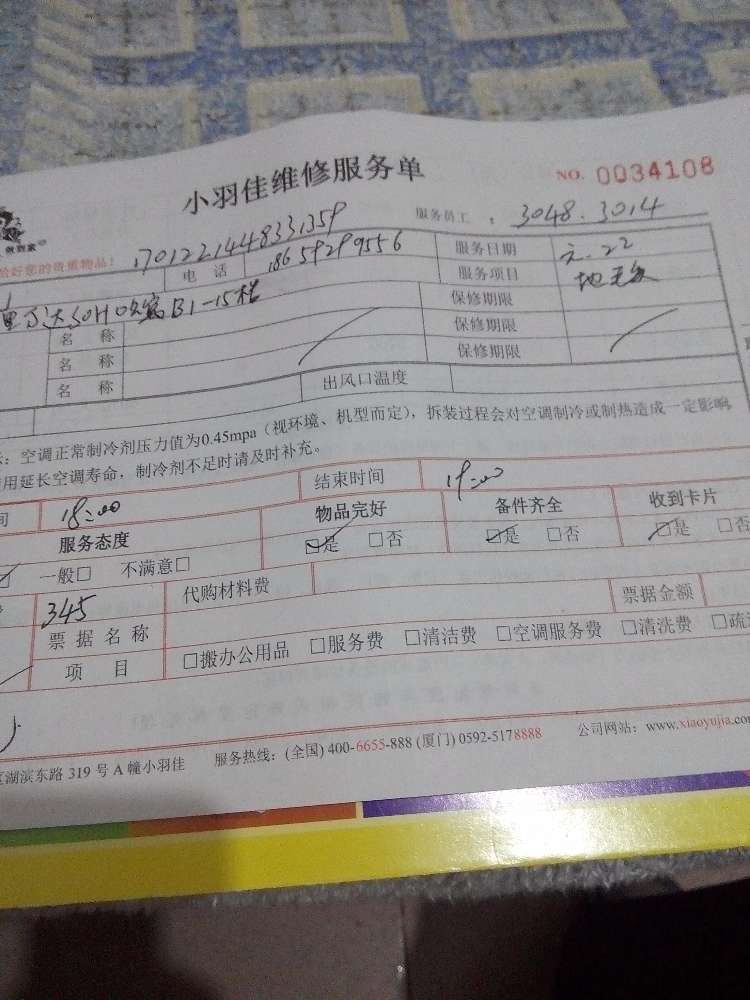 小羽佳维修服务单
NO. 0034108
服务员工：3048.3014
做到家
您的贵重物品！ 1701221448331359
电话 18659299556 服务日期
SOHO B1-15楼 服务项目
名称 保修期限
名称 保修期限
名称 保修期限
出风口温度
：空调正常制冷剂压力值为0.45mpa（视环境、机型而定），拆装过程会对空调制冷或制热造成一定影响
用延长空调寿命，制冷剂不足时请及时补充。
间 18:00 结束时间 19:00
服务态度 物品完好 备件齐全 收到卡片
一般□ 不满意□ ☑是 □否 ☑是 □否 ☑是 □否
345 代购材料费 票据金额
票据名称
项目 □搬办公用品 □服务费 □清洁费 □空调服务费 □清洗费 □疏
湖滨东路 319 号 A 幢小羽佳 服务热线：(全国) 400-6655-888 (厦门) 0592-5178888 公司网站：www.xiaoyujia.co